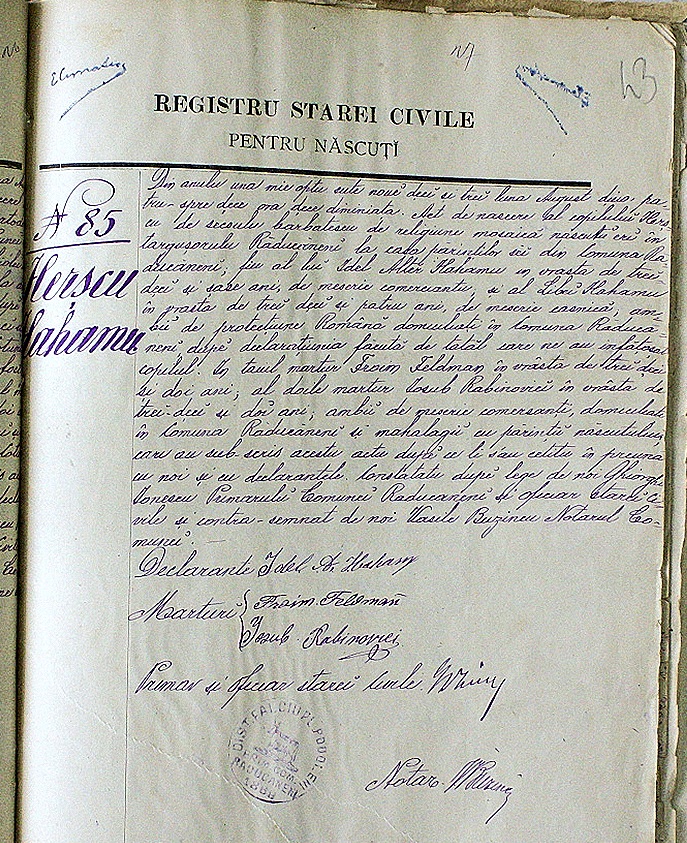 27
43
REGISTRU STAREI CIVILE
PENTRU NĂSCUȚĬ
N 85
Herscu
Hahamu
Din anulu una mie optu sute nouĕ deci si trei luna August diua pa-
tru-spre-dece ora dece diminiata. Act de nascere al copilului Hers-
cu de secsulu barbatescu de religiune mosaică născutu erĭ în
targusorulu Raducanenĭ la casa părinților sĕi din Comuna Ra-
ducănenĭ, fiu al luĭ Idel Alter Hahamu in vrasta de trei-
deci si sase ani, de meserie comerciantu, si al Libei Hahamu
in vrasta de trei deci si patru ani, de meserie casnică, am-
biĭ de protectiune Română domiciliatĭ in Comuna Raducă-
neni dupĕ declaratiunea facută de tatăl care ne au infatosat
copilul. In taiul martur Froim Feldman in vrâsta de trei deci
si doi ani, al doile martur Iosub Rabinovicĭ in vrâsta de
trei-deci si doĭ ani, ambiĭ de meserie comersanțĭ, domiciliatĭ
in Comuna Raducăneni si mahalagiĭ cu părintiĭ născutuluĭ
cari au sub scris acestu actu după ce li s'au cetitu in preuna
cu noi si cu declarantele. Constatatu după lege de noi Gheorghe
Ionescu Primarulu Comunei Raducaneni si oficiar stareĭ Ci-
vile si contra-semnat de noi Vasile Buzincu Notarul Co-
muneĭ.
Declarante Idel A. Hahamu
Marturi Froim Feldman
Iosub Rabinovici
Primar si oficiar stareĭ Civile
DIST. FALCIU PL. PODOLENI
RADUCANENI
Notar